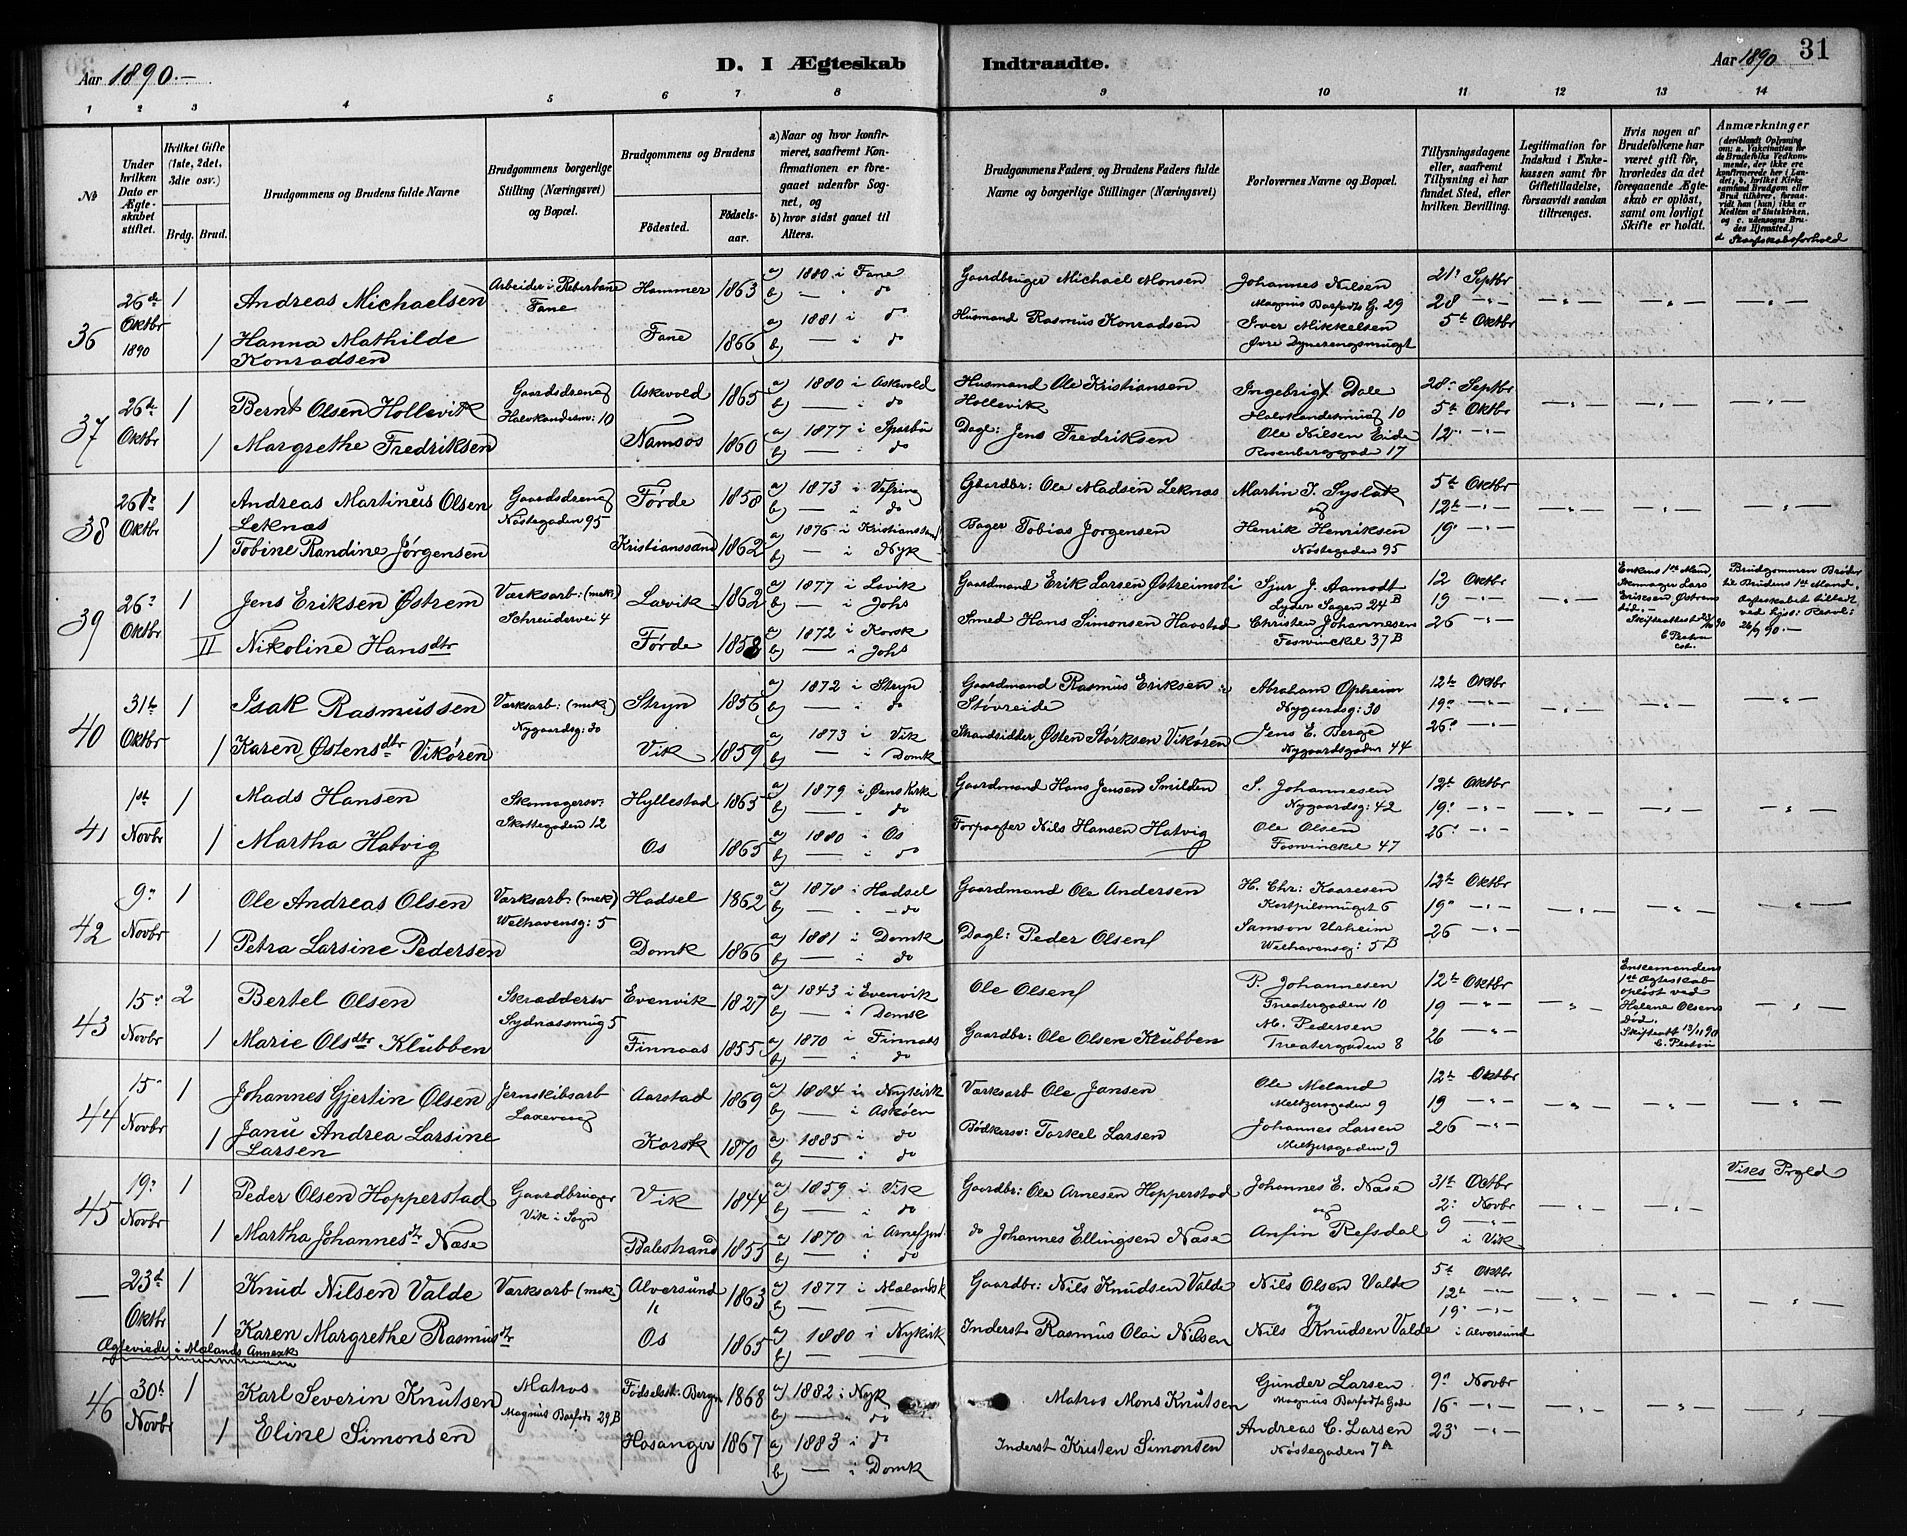 Aar 1890.—
D. I Ægteskab Indtraadte.
Aar 1890 31
1 2 3 4 5 6 7 8 9 10 11 12 13 14
No
Under hvilken Dato er Ægteskabet stiftet.
Hvilket Gifte (1ste, 2det, 3die osv.)
Brdg. Brud.
Brudgommens og Brudens fulde Navne
Brudgommens borgerlige Stilling (Næringsvei) og Bopæl.
Brudgommens og Brudens
Fødested. Fødselsaar.
a) Naar og hvor konfirmeret, saafremt Konfirmationen er foregaaet udenfor Sognet, og
b) hvor sidst gaaet til Alters.
Brudgommens Faders, og Brudens Faders fulde Navne og borgerlige Stillinger (Næringsvei)
Forlovernes Navne og Bopæl.
Tillysningsdagene eller, saafremt Tillysning ei har fundet Sted, efter hvilken Bevilling.
Legitimation for Indskud i Enkekassen samt for Giftetilladelse, forsaavidt saadan tiltrænges.
Hvis nogen af Brudefolkene har været gift før, hvorledes da det foregaaende Ægteskab er opløst, samt om lovligt Skifte er holdt.
Anmærkninger
(deriblandt Oplysning om: a. Vaccination for de Brudefolks Vedkommende, der ikke ere konfirmerede her i Landet, b. hvilket Kirkesamfund Brudgom eller Brud tilhører, forsaavidt han (hun) ikke er Medlem af Statskirken, og c. udensogns Brudes Hjemsted.)
36 26de Oktbr 1890 1 Andreas Michaelsen Arbeider i Fane Hammer 1863 a) 1880 i Fane b) — " do Gaardbruger Michael Monsen Johannes Nilsen Magnus Barfodts G. 29 21' Septbr 28 —"—
1 Hanna Mathilde Konradsen Fane 1866 a) 1881 i do b) — " do Husmand Rasmus Konradsen Iver Mikkelsen 5te Oktbr
37 26de Oktbr 1 Bernt Olsen Hollevik Gaardsdreng Askevold 1865 a) 1880 i Askevold b) — " do Husmand Ole Kristiansen Hollevik Ingebrigt Dale 28' Septbr 5te Oktbr
1 Margrethe Fredriksen Namsos 1860 a) 1877 i Sparbu b) — " do Dagl: Jens Fredriksen Ole Nilsen Eide Rosenberggade 17 12' —"—
38 26de Oktbr 1 Andreas Martinus Olsen Leknæs Gaardsdreng Nøstegaden 95 Førde 1858 a) 1873 i Vefring b) — " do Gaardbr: Ole Madsen Leknæs Martin J. Syslak og 5te Oktbr 12te —"—
1 Tobine Randine Jørgensen Kristianssand 1862 a) 1876 i Kristianssand b) — i Nyk Bager Tobias Jørgensen Henrik Henriksen Nøstegaden 95 19' —"—
39 26' Oktbr 1 Jens Eriksen Østrem Værksarb: (mek) Schreudervei 4 Lavik 1862 a) 1877 i Lavik b) — " Johs Gaardmand Erik Larsen Østreimsli Sjur J. Aamodt Lyder Sagen 24 B 12 Oktbr 19 —"— Enkens 1ste Mand, Skomager Lars Eriksen Østrem død.— Brudgommen Broder til Brudens 1ste Mand. Ægteskabet tilladt ved kgl: Resol: 26/9 90.—
II Nikoline Hansdtr Førde 1858 a) 1872 i Korsk b) — i Johs Smed Hans Simonsen Havstad Christen Johannesens Fosvinckel 37 B 26 —"—
40 31te Oktbr 1 Isak Rasmussen Værksarb: (mek) Nygaardsg: 30 Stryn 1856 a) 1872 i Stryn b) — " do Gaardmand Rasmus Eriksen Støvreide Abraham Opheim Nygaardsg: 30 12te Oktbr 19' —"—
1 Karen Østensdtr Vikøren Vik 1859 a) 1873 i Vik b) — " Domk Strandsidder Østen Størksen Vikøren Jens E. Berge Nygaardsgaden 44 26' —"—
41 1ste Novbr 1 Mads Hansen Skomagersv: Skottegaden 12 Hyllestad 1863 a) 1879 i Øens Kirke b) — do Gaardmand Hans Jensen Smilden S. Johannesen Nygaardsg: 42 12te Oktbr 19' —"—
1 Martha Hatvig Os 1865 a) 1880 i Os b) — " do Forpagter Nils Hansen Hatvig Ole Olsen Fosvinckel 47 26' —"—
42 9' Novbr 1 Ole Andreas Olsen Værksarb (mek) Welhavensg: 5 Hadsel 1862 a) 1878 i Hadsel b) — " — do Gaardmand Ole Andersen H. Chr: Kaaresen 12te Oktbr 19' —"—
1 Petra Larsine Pedersen Domk 1866 a) 1881 i Domk b) — i do Dagl: Peder Olsen Samson Urheim Welhavensg: 5 B 26 —"—
43 15' Novbr 2 Bertel Olsen Skræddersv Sydnæssmug 5 Evenvik 1827 a) 1843 i Evenvik b) — i Domk Ole Olsen P. Johannesen Theatergaden 10 12te Oktbr 19 —"— Enkemandens 1ste Ægteskab opløst ved Helene Olsens død.
1 Marie Olsdtr Klubben Finnaas 1855 a) 1870 i Finnaas b) — " do Gaardbr: Ole Olsen Klubben M. Pedersen Theatergaden 8 26 —"—
44 15' Novbr 1 Johannes Gjertin Olsen Jernskibsarb Laxevaag Aarstad 1869 a) 1884 i Nykirk b) — i Askøen Værksarb Ole Jansen Ole Meland Meltzersgaden 9 12te Oktbr 19 —"—
1 Janu Andrea Larsine Larsen Korsk 1870 a) 1885 i do b) — " do Bødkersv: Torkel Larsen Johannes Larsen Meltzersgaden 9 26 —"—
45 19' Novbr 1 Peder Olsen Hopperstad Gaardbruger Vik i Sogn Vik 1844 a) 1859 i Vik b) — " do Gaardbr: Ole Arnesen Hopperstad Johannes E. Næse og 31te Octbr 2' Novbr
1 Martha Johannesdtr Næse Balestrand 1855 a) 1870 i Arnefjord b) — " do do Johannes Ellingsen Næse Anfin Refsdal 9 —"— i Vik
— 23de Oktbr 1 Knud Nilsen Valde Værksarb (mek) Alversund 1863 a) 1877 i Mælands k b) — — Gaardbr: Nils Knudsen Valde Nils Olsen Valde og 5te Oktbr 12te —"—
1 Karen Margrethe Rasmusdtr Os 1865 a) 1880 i Nykirk b) — Inderst Rasmus Olai Nilsen Nils Knudsen Valde 19' —"— i Alversund
Ægteviede i Mælands Annexk
46 30te Novbr 1 Karl Severin Knutsen Matros Magnus Barfods 29 B Fødselsst. Bergen 1868 a) 1882 i Nyk b) — " do Matros Mons Knutsen Gunder Larsen Magnus Barfodts Gade 9' Novbr 16' —"—
1 Eline Simonsen Hosanger 1867 a) 1883 i do b) — i Domk Inderst Kristen Simonsen Andreas C. Larsen Nøstegaden 7 A 23' —"—